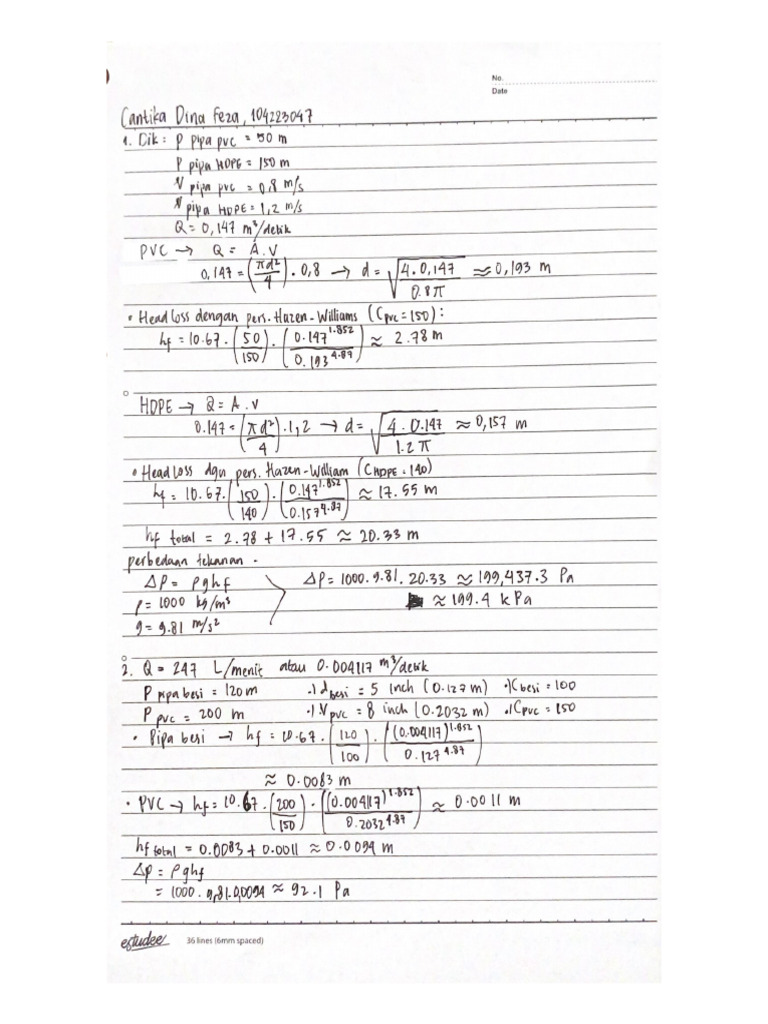 No.
Date
Cantika Dina Feza, 104223047
1. Dik : P pipa pvc = 50 m
P pipa HDPE = 150 m
V pipa pvc = 0,8 m/s
V pipa HDPE = 1,2 m/s
Q = 0,147 m³/detik
PVC → Q = A.V
0,147 = (πd²/4) . 0,8 → d = √(4.0,147/0.8π) ≈ 0,193 m
• Head loss dengan pers. Hazen-Williams (Cpvc = 150) :
hf = 10.67 . (50/150) . (0.147^1.852/0.193^4.87) ≈ 2.78 m
HDPE → Q = A.V
0.147 = (πd²/4) . 1,2 → d = √(4.0.147/1.2π) ≈ 0,157 m
• Head loss dgn pers. Hazen-William (CHDPE = 140)
hf = 10.67 . (150/140) . (0.147^1.852/0.157^4.87) ≈ 17.55 m
hf total = 2.78 + 17.55 ≈ 20.33 m
perbedaan tekanan .
ΔP = ρghf
ρ = 1000 kg/m³
g = 9.81 m/s²
ΔP = 1000.9.81.20.33 ≈ 199,437.3 Pa
≈ 199.4 kPa
2. Q = 247 L/menit atau 0.004117 m³/detik
P pipa besi = 120 m .) dbesi = 5 inch (0.127 m) .) Cbesi = 100
P pvc = 200 m .) Vpvc = 8 inch (0.2032 m) .) Cpvc = 150
• Pipa besi → hf = 10.67 . (120/100) . ((0.004117)^1.852/0.127^4.87)
≈ 0.0083 m
• PVC → hf = 10.67 . (200/150) . ((0.004117)^1.852/0.2032^4.87) ≈ 0.0011 m
hf total = 0.0083 + 0.0011 ≈ 0.0094 m
Δp = ρghf
= 1000. 9,81.0,0094 ≈ 92.1 Pa
estudee 36 lines (6mm spaced)